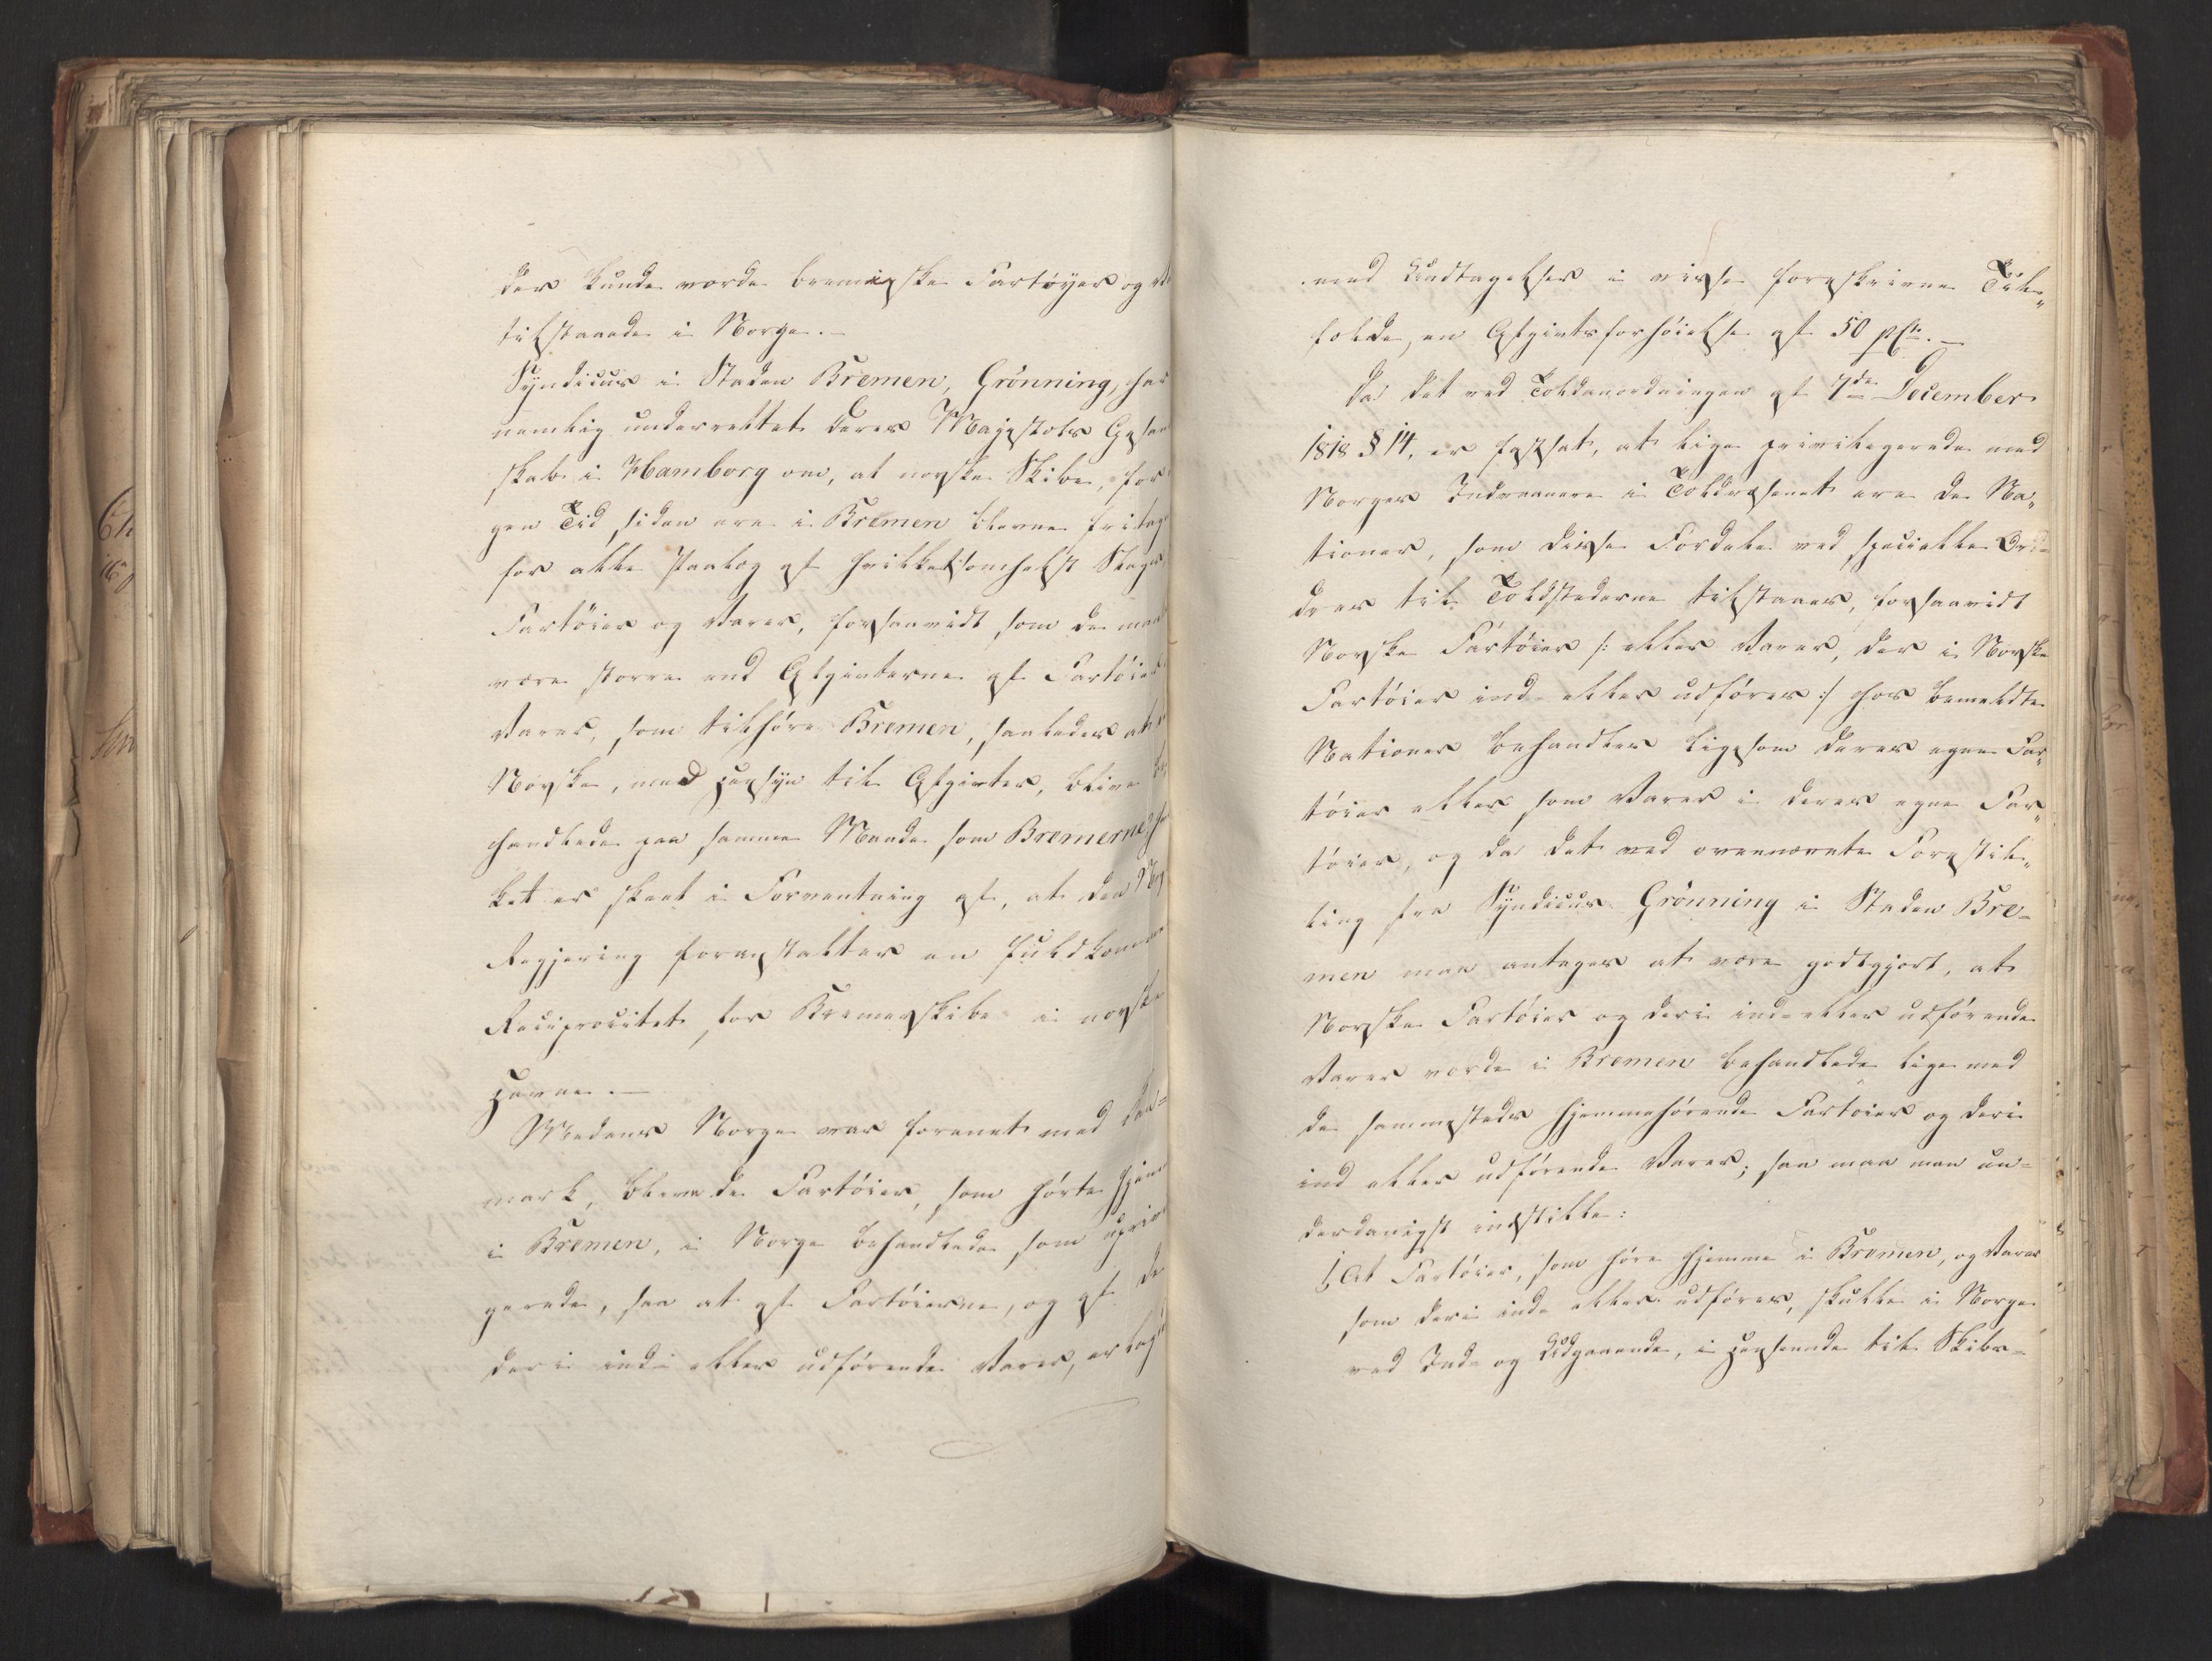 der kunde vorde bremiske Fartøyer og
tilstaaede i Norge. —
Syndicus i Staden Bremen, Grønning, har
nemlig underrettet Deres Majestæts Gesan
skab i Hamborg om, at norske Skibe, for
gen Tid siden ere i Bremen blevne fritag
for alle Paalæg af hvilketsomhelst Slags,
Fartöier og Varer, forsaavidt som de maa
være større end Afgivterne af Fartöier
Varer, som tilhøre Bremen, saaledes at
Norske, med Hensyn til Afgivter, blive be
handlede paa samme Maade som Bremerne,
ket er skeet i Forventning af, at den Nor
Regjering foranstalter en fuldkommen
Reciprocitet for Bremerskibe i norske
Havne. —
Medens Norge var forenet med Dan=
mark, bleve de Fartöier, som hørte hjem
i Bremen, i Norge behandlede som uprivi
gerede, saa at af Fartöierne, og af de
deri ind- eller udførende Varer, erlag
med Undtagelser i visse foreskrevne Til„
fælde, en Afgivtsforhøielse af 50 pCt. —
Da det ved Toldanordningen af 7de December
1818 § 14, er fastsat, at lige privilegerede med
Norges Indvaanere i Toldvæsenet ere de Na„
tioner, som disse Fordele ved specielle Or=
drer til Toldstederne tilstaaes, forsaavidt
Norske Fartöier /: eller Varer, der i Norske
Fartöier ind- eller udføres :/ hos bemeldte
Nationer behandles ligesom deres egne Far„
töier eller som Varer i deres egne Far„
töier, og da det ved ovennævnte Forestil„
ling fra Syndicus Grønning i Staden Bre=
men maa antages at være godtgjort, at
Norske Fartöier og deri ind- eller udförende
Varer vorde i Bremen behandlede lige med
de sammesteds hjemmehørende Fartöier og deri
ind eller udförende Varer; saa maa man un=
derdanigst indstille:
At Fartöier, som høre hjemme i Bremen, og Varer
som deri ind- eller udføres, skulle i Norge
ved Ind- og Udgaaende, i Henseende til Skibs=